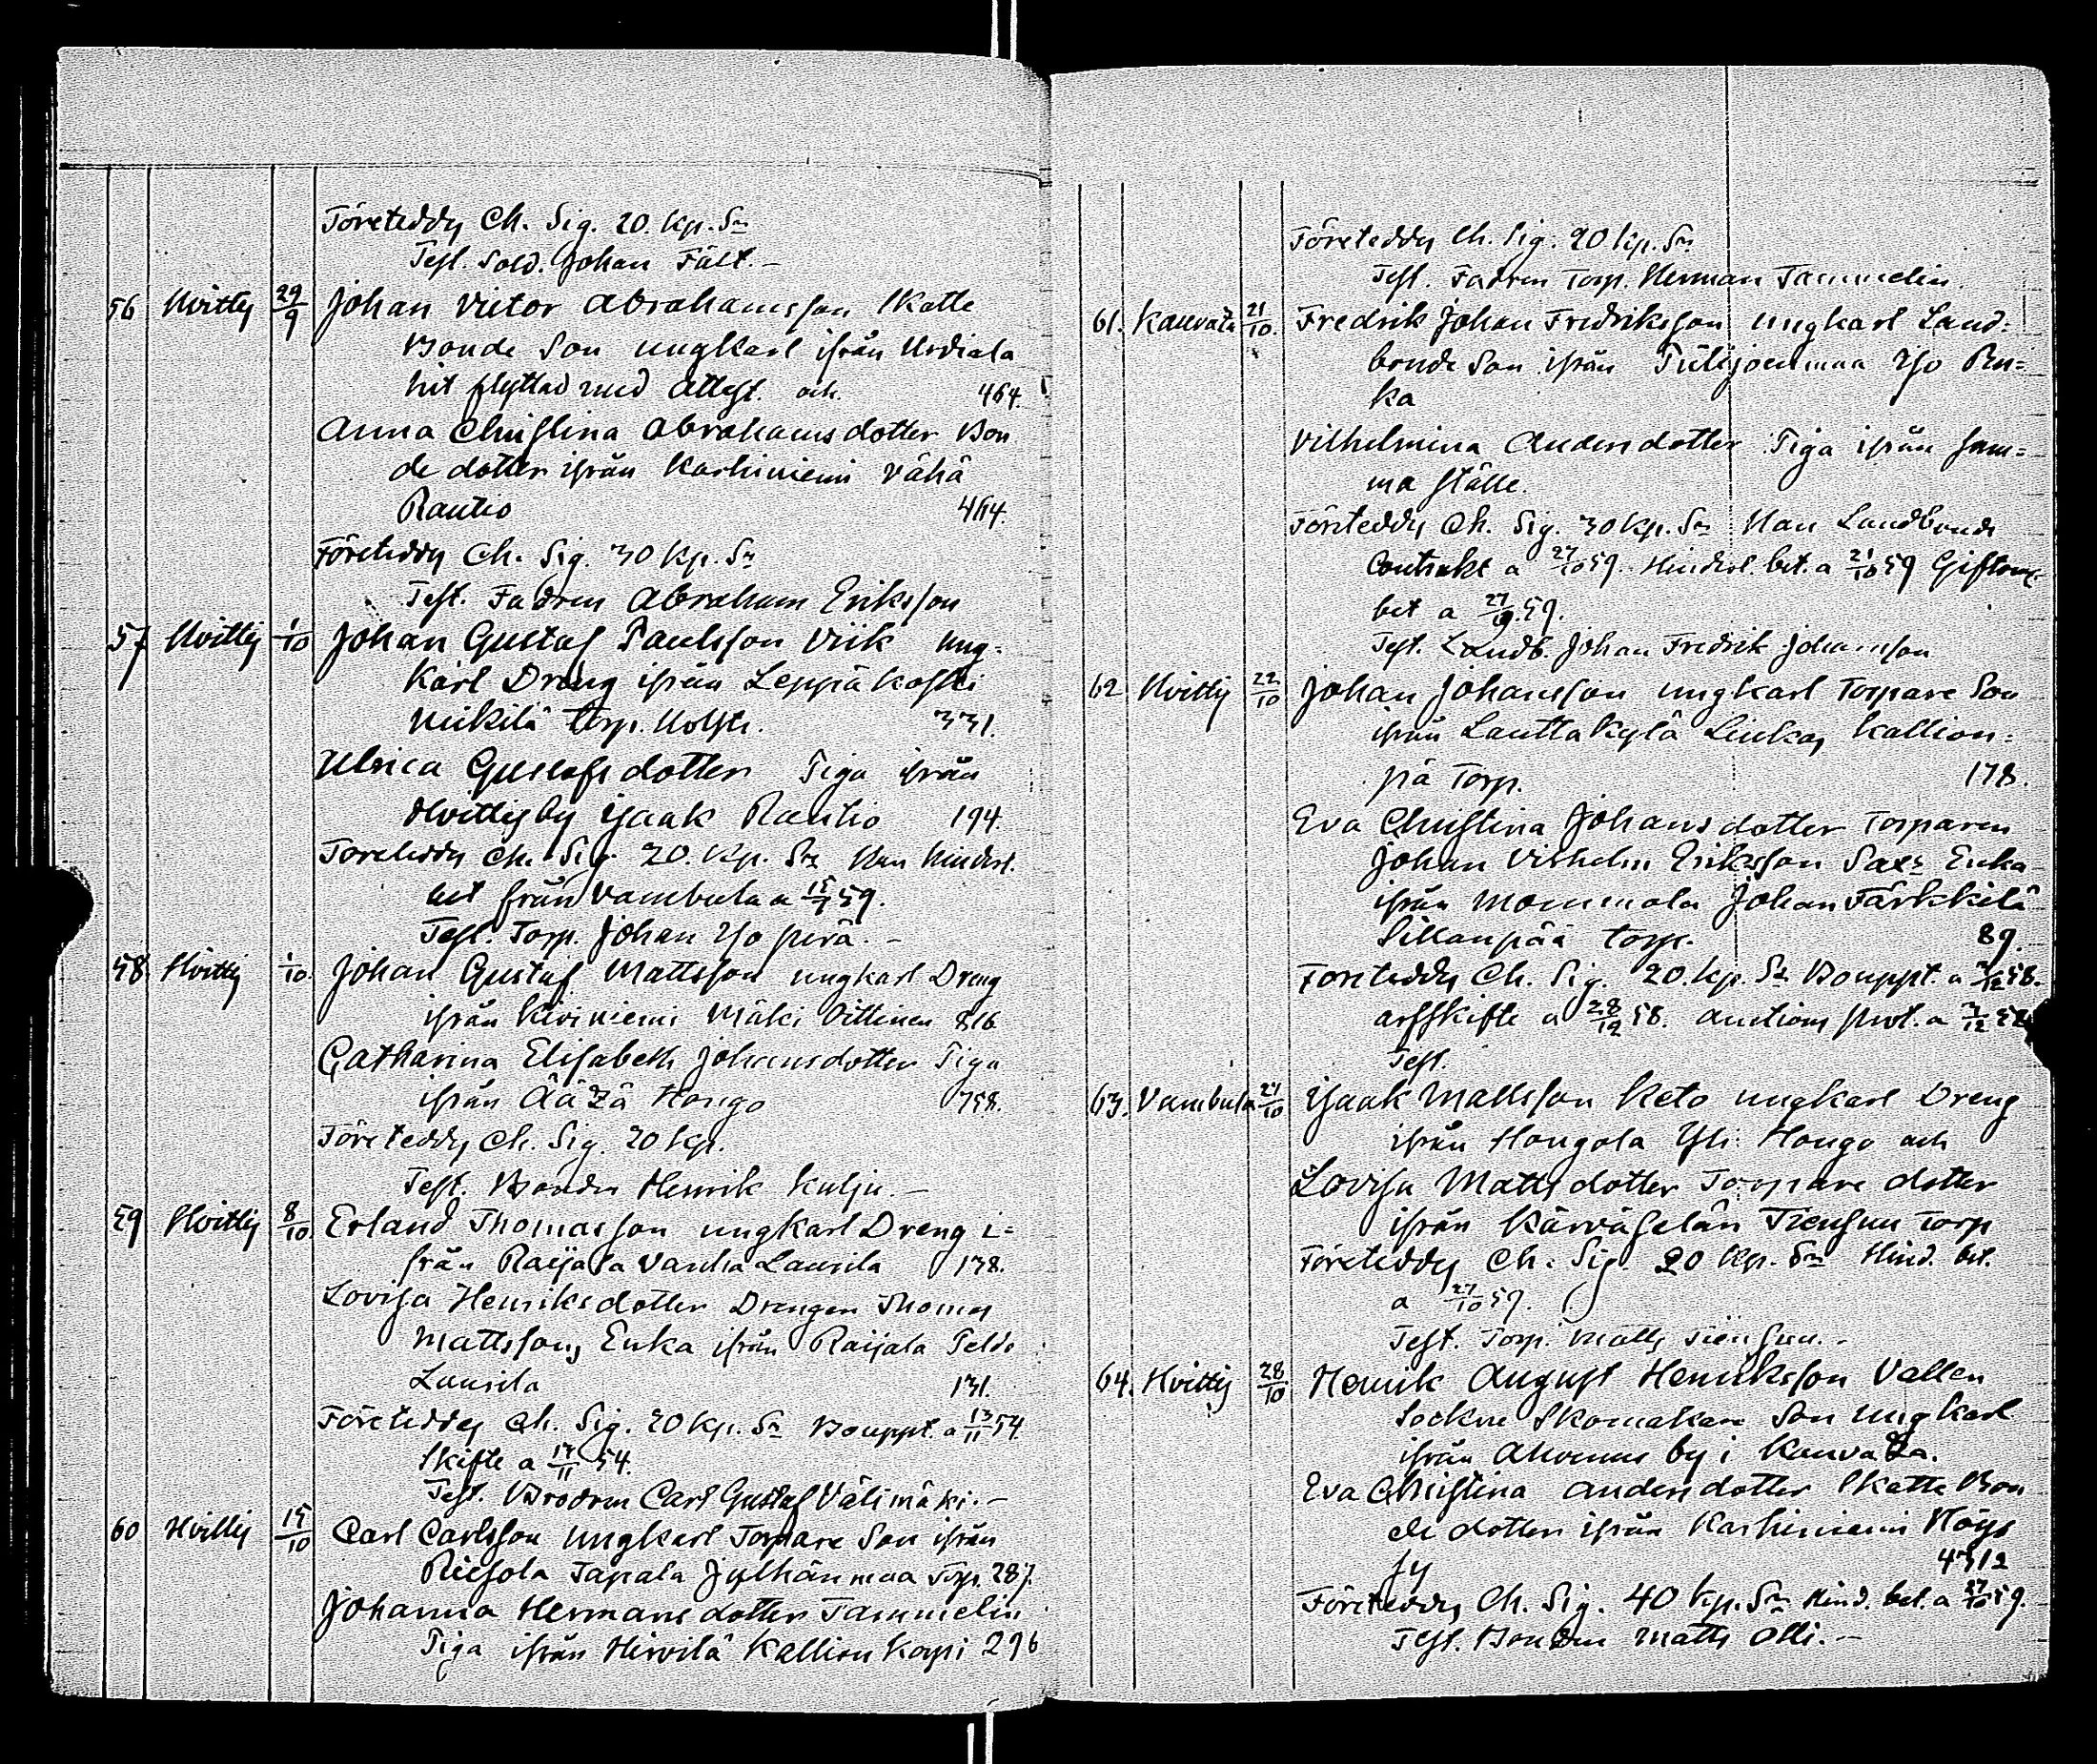 Företeddes Ch. Sig. 20. kp. Sr
Test. Sold. Johan Fält. –
56 Hvittis 29/9 Johan Victor Abrahamsson Skatte
Bonde Son ungkarl ifrån Urdiala
hit flyttad med Attest. och 464.
Anna Christina Abrahamsdotter Bon
de dotter ifrån Karhiniemi Vähä
Rautio 464.
Företeddes Ch. Sig. 30 kp. Sr
Test. Fadren Abraham Eriksson
57 Hvittis 1/10 Johan Gustaf Paulsson Viik ung-
karl Dräng ifrån Leppäkoski
Torp. 331.
Ulrica Gustafsdotter Piga ifrån
Hvittisby Isaak Rautio 194.
Företeddes Ch. Sig. 20. kp. Sr Hindersl.
bet från Vambula a 59.
Test. Torp. Johan Isoperä. –
58 Hvittis 1/10. Johan Gustaf Mattsson ungkarl Dreng
ifrån Kiviniemi Mäki Vittinen 816
Catharina Elisabeth Johansdotter Piga
ifrån Äätzä Hongo 758.
Företeddes Ch. Sig. 20 kp.
Test. Bonden Henrik Kulju. –
59 Hvittis 8/10. Erland Thomasson ungkarl Dreng i=
från Raijala Vanha Laurila 138.
Lovisa Henriksdotter Drengen Thomas
Mattssons Enka ifrån Raijala Peldo
Laurila 131.
Företeddes Ch. Sig. 20 kp. Sr Bouppt. a 13/11 54.
Skifte a 54.
Test. Brodren Carl Gustaf Välimäki. –
60 Hvittis 15/10 Carl Carlsson ungkarl Torpare Son ifrån
Riesola Tapala Jylhänmaa Torp. 287.
Johanna Hermansdotter Tammelin
Piga ifrån Hirvilä Kallionkorpi 296
Företeddes Ch. Sig. 20 kp. Sr
Test. Fadren Torp. Herman Tammelin.
61. Kauvatz 21/10. Fredrik Johan Fredriksson ungkarl Land=
bonde Son ifrån Piilijoenmaa Iso Ru=
ka
Vilhelmina Andersdotter Piga ifrån sam=
ma ställe.
Företeddes Ch. Sig. 30 kp. Sr Landbonde
Contrakt a 59. Hindersl. bet. a 21/10 59 Giftom.
bet a 59.
Test. Landb. Johan Fredrik Johansson
62 Hvittis 22/10 Johan Johansson ungkarl Torpare Son
ifrån Lauttakylä Kallion=
pä Torp. 178.
Eva Christina Johansdotter Torparen
Johan Vilhelm Eriksson Enka
ifrån Mommola Johan Färkkilä
Sillanpää torp. 89.
Företeddes Ch. Sig. 20. kp. Sr Bouppt. a 58.
arfskifte a 28/12 58. Auctions prot. a
Test.
63. Vambula 21/10 Isaak Mattsson Keto ungkarl Dreng
ifrån Hongola Yli Hongo och
Lovisa Mattsdotter Torpare dotter
ifrån Kärväselän Tiensuu Torp
Företeddes Ch. Sig. 20 kp. Sr Hind. bet.
a 59.
Test. Torp. Matts Tiensuu. –
64. Hvittis 28/10 Henrik August Henriksson Vallen
Sockne Skomakare Son ungkarl
ifrån Ahvenus by i Kauvatza.
Eva Christina Andersdotter Skatte Bon
de dotter ifrån Karhiniemi Höys
sy
Företeddes Ch. Sig. 40 kp. Sr Hind. bet. a 59.
Test. Bonden Matts Olli. –